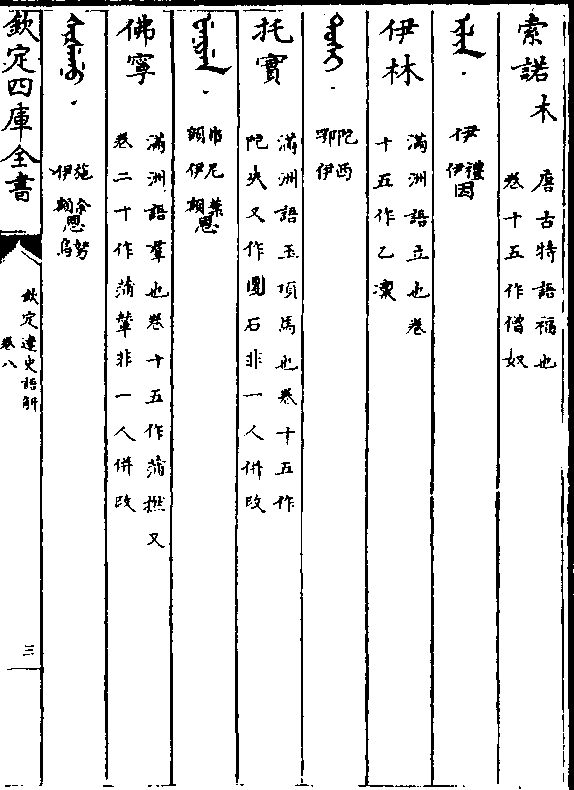 索諾木
唐古特語福也
卷十五作僧奴
伊 禮因
伊
伊林
滿洲語立也卷
十五作乙凜
阤西
鄂伊
托實
滿洲語玉頂馬也卷十五作
阤失又作圖石非一人併改
尼葉
額伊額恩
佛寧
滿洲語羣也卷十五作蒲撚又
卷二十作蒲輦非一人併改
施 努
伊額恩烏
欽定四庫全書
欽定遼史語解
卷八
三